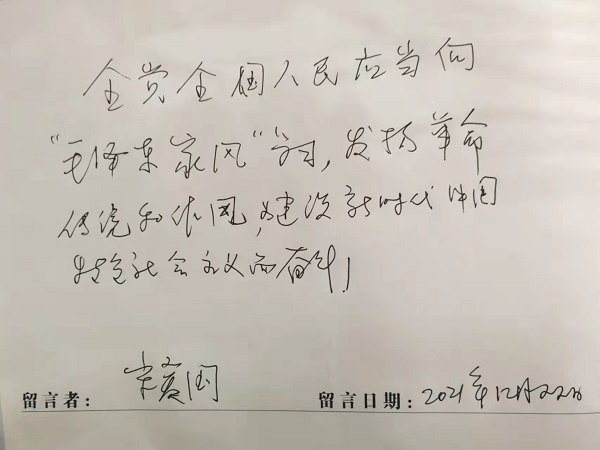 全党全国人民应当向
“毛泽东家风”学习,发扬革命
传统和作风,为建设新时代中国
特色社会主义而奋斗!
留言者: 宋爱国 留言日期: 2021年12月22日